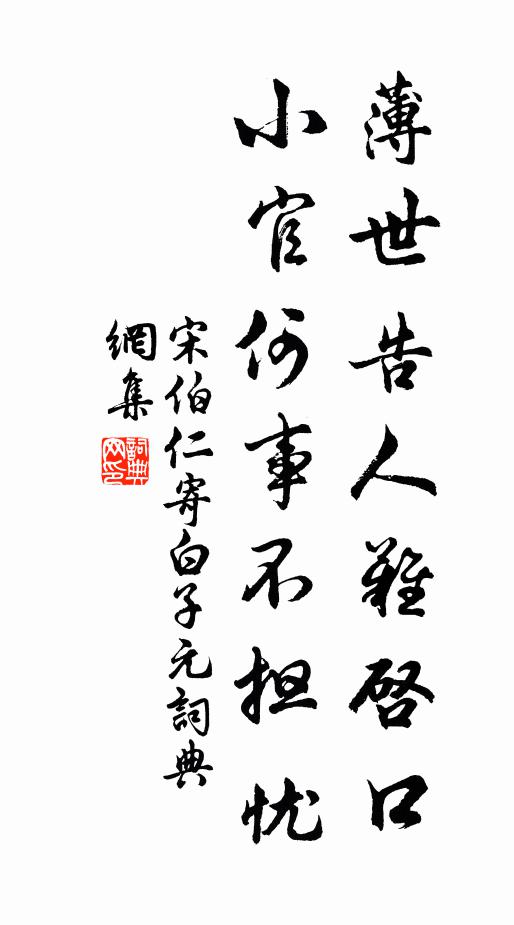 薄世告人難啓口
小官何事不担忧
宋伯仁寄白子元詞典
網集
詞典网印